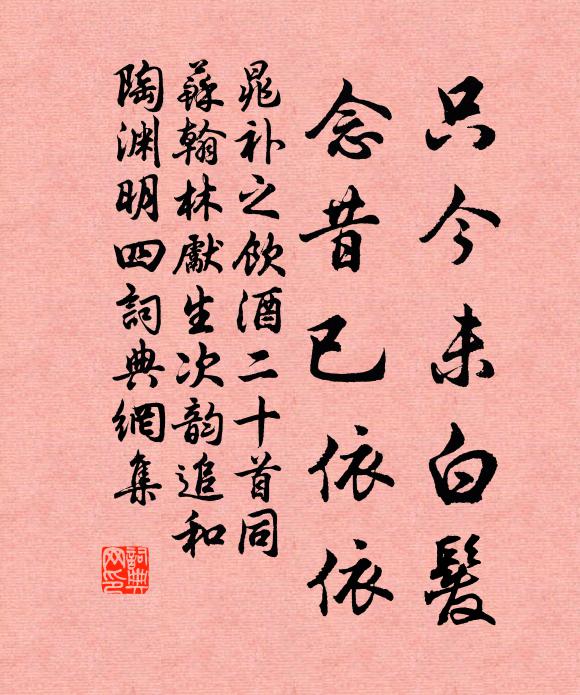 只今未白髮
念昔已依依
晁补之飲酒二十首同
蘇翰林獻生次韵追和
陶渊明四詞典網集
詞典网印